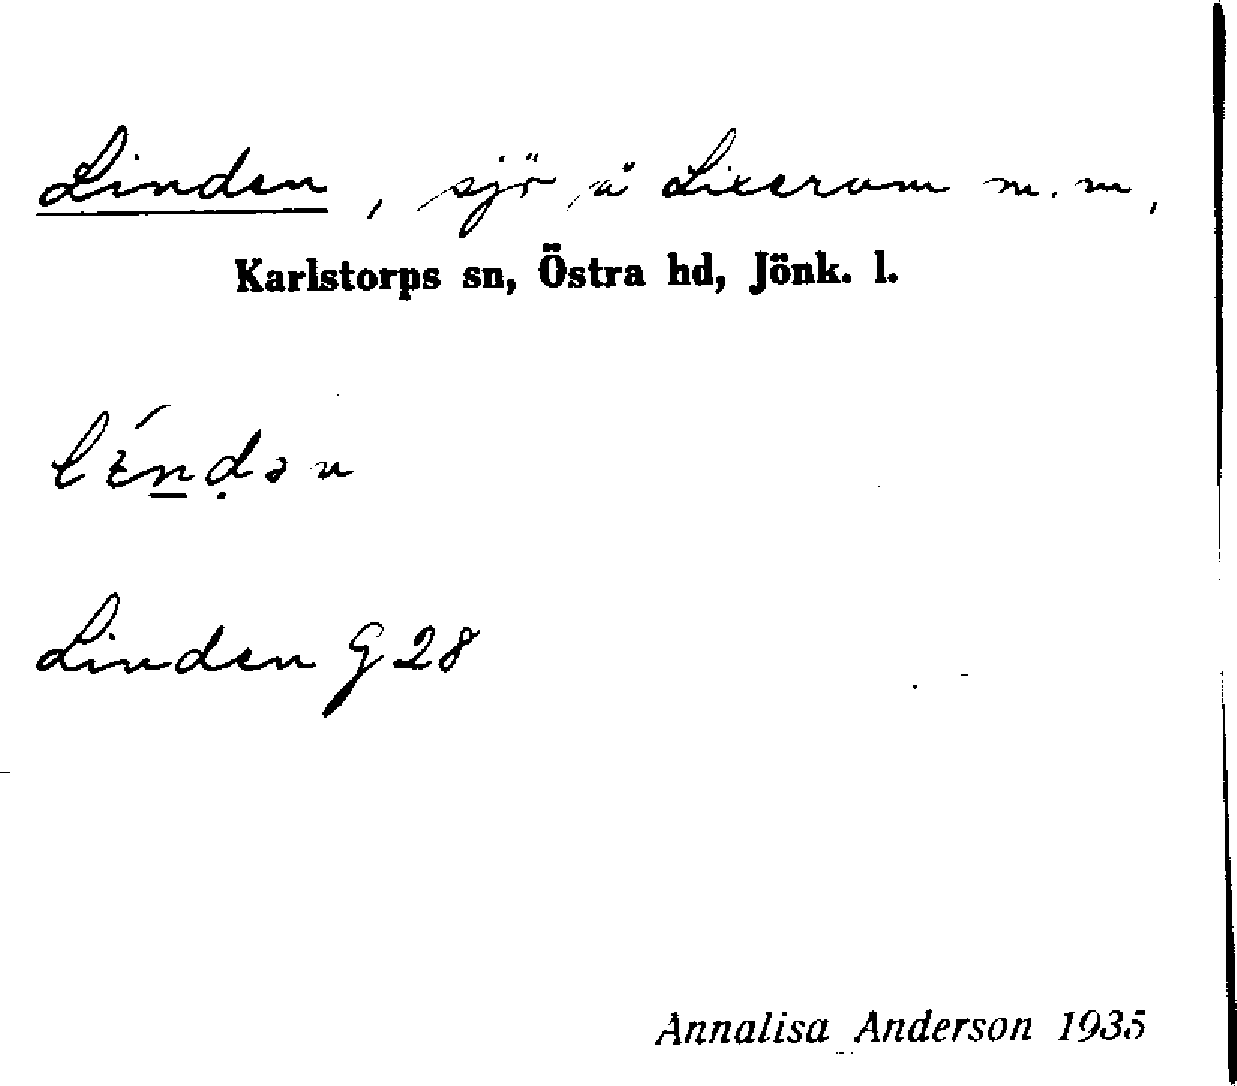 Linden, sjö å Lixerum m.m,
Karlstorps sn, Östra hd, Jönk. l.
Linden G 28
Annalisa Anderson 1935